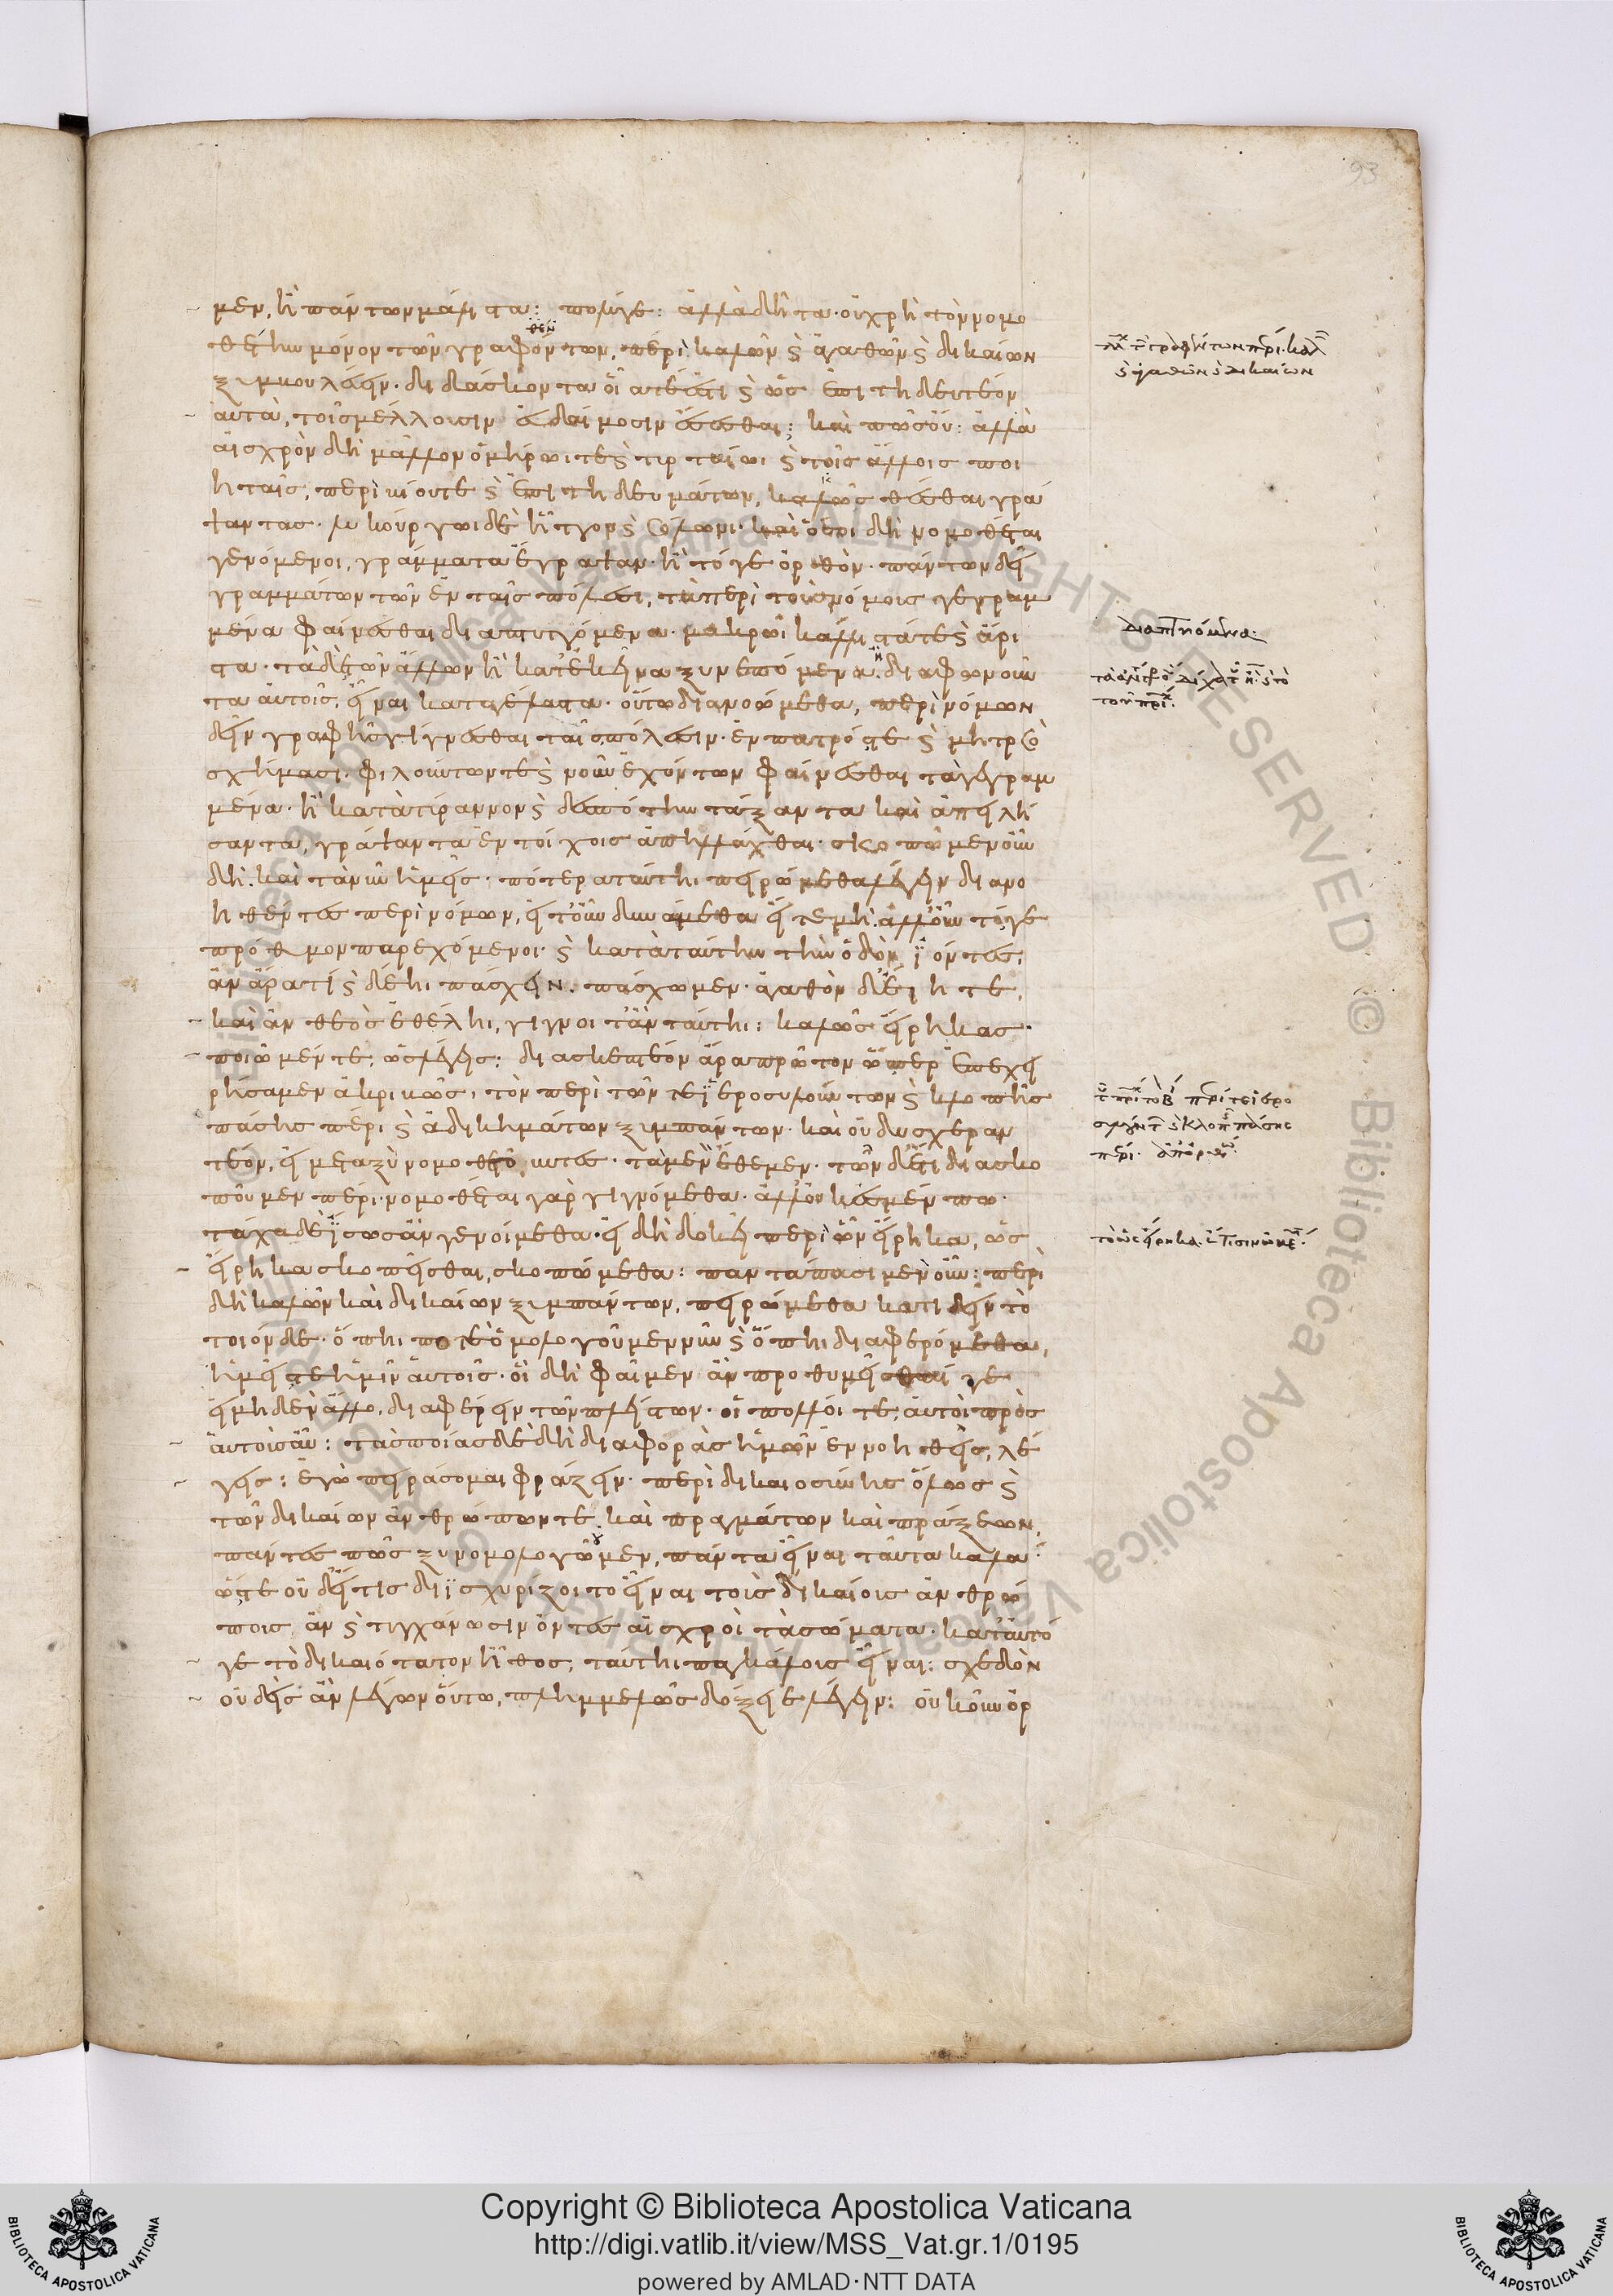 μεν, ἢ πάντων μάλιστα: πολύ γε: ἀλλὰ δῆτα οὐ χρὴ τὸν νομο
θέτην μόνον τῶν γραφόντων, περὶ καλῶν ϗ ἀγαθῶν ϗ δικαίων
ξυμβουλεύειν· διδάσκοντα οἷά τέ ἐστι ϗ ὡς ἐπιτηδευτέον
αὐτὰ, τοῖς μέλλουσιν εὐδαίμοσιν ἔσεσθαι; καὶ πῶς οὔ: ἀλλὰ
αἰσχρὸν δὴ μᾶλλον ὁμήρωι τε ϗ τυρταίωι ϗ τοῖς ἄλλοις ποι
ηταῖς, περὶ βίου τε ϗ ἐπιτηδευμάτων, κακῶς θέσθαι γρά
ψαντας· λυκούργωι δὲ ἧττον ϗ σόλωνι· καὶ ὅσοι δὴ νομοθέται
γενόμενοι, γράμματα ἔγραψαν· ἢ τό γε ὀρθὸν· πάντων δεῖ
γραμμάτων τῶν ἐν ταῖς πόλεσι, τὰ περὶ τοὺς νόμους γεγραμ
μένα φαίνεσθαι διαπτυττόμενα· μακρῶι κάλλιστά τε ϗ ἄρι
στα· τὰ δὲ τῶν ἄλλων ἢ κατ' ἐκεῖνα ξυνεπόμενα· ἢ διαφωνοῦν
τα αὐτοῖς, εἶναι καταγέλαστα· οὕτω διανοώμεθα, περὶ νόμων
δεῖν γραφῆς γίγνεσθαι ταῖς πόλεσιν· ἐν πατρός τε ϗ μητρὸς
σχήμασι· φιλούντων τε ϗ νοῦν ἐχόντων φαίνεσθαι τὰ γεγραμ
μένα· ἢ κατὰ τύραννον ϗ δεσπότην τάξαντα καὶ ἀπειλή
σαντα, γράψαντα ἐν τοίχοις ἀπηλλάχθαι· σκοπῶμεν οὖν
δὴ καὶ τὰ νῦν ἡμεῖς· πότερα ταύτηι πειρώμεθα λέγειν διανο
ηθέντες περὶ νόμων, εἴτ' οὖν δυνάμεθα εἴτε μὴ, ἀλλ' οὖν τό γε
πρόθυμον παρεχόμενοι· ϗ κατὰ ταύτην τὴν ὁδὸν ἰόντες,
ἂν ἄρα τὶ ϗ δέηι πάσχειν· πάσχωμεν· ἀγαθὸν δ' εἴη τε,
καὶ ἂν θεὸς ἐθέληι, γίγνοιτ' ἂν ταύτηι: καλῶς εἴρηκας·
ποιῶμέν τε, ὡς λέγεις: διασκεπτέον ἄρα πρῶτον ὥσπερ ἐπεχει
ρήσαμεν ἀκριβῶς, τὸν περὶ τῶν τε ἱεροσυλούντων ϗ κλοπῆς
πάσης πέρι ϗ ἀδικημάτων ξυμπάντων· καὶ οὐ δυσχεραν
τέον, εἰ μεταξὺ νομοθετοῦντες· τὰ μὲν ἔθεμεν· τῶν δ' ἔτι διασκο
ποῦμεν πέρι· νομοθέται γὰρ γιγνόμεθα· ἀλλ' οὐκ ἐσμέν πω·
τάχα δὲ ἴσως ἂν γενοίμεθα· εἰ δὴ δοκεῖ περὶ ὧν εἴρηκα, ὡς
εἴρηκα σκοπεῖσθαι, σκοπώμεθα: παντάπασι μὲν οὖν: περὶ
δὴ καλῶν καὶ δικαίων ξυμπάντων, πειρώμεθα κατιδεῖν τὸ
τοιόνδε· ὅπηι ποτὲ ὁμολογοῦμεν νῦν ϗ ὅπηι διαφερόμεθα,
ἡμεῖς τε ἡμῖν αὐτοῖς· οἳ δὴ φαῖμεν ἂν προθυμεῖσθαί γε
εἰ μηδὲν ἄλλο, διαφέρειν τῶν πλείστων· οἱ πολλοί τε, αὐτοὶ πρὸς
αὑτοὺς αὖ: τὰς ποίας δὲ δὴ διαφορὰς ἡμῶν ἐννοηθεὶς, λέ
γεις: ἐγὼ πειράσομαι φράζειν· περὶ δικαιοσύνης ὅλως ϗ
τῶν δικαίων ἀνθρώπων τε, καὶ πραγμάτων καὶ πράξεων,
πάντες πως ξυνομολογοῦμεν, πάντα εἶναι ταῦτα καλά·
ὥστε οὐδ' εἴ τις διισχυρίζοιτο εἶναι τοὺς δικαίους ἀνθρώ
πους, ἂν ϗ τυγχάνωσιν ὄντες αἰσχροὶ τὰ σώματα· κατ' αὐτό
γε τὸ δικαιότατον ἦθος, ταύτηι παγκάλους εἶναι: σχεδὸν
οὐδεὶς ἂν λέγων οὕτω, πλημμελῶς δόξειε λέγειν: οὐκοῦν ὀρ
διαπτυττόμενα·
93
Copyright © Biblioteca Apostolica Vaticana
http://digi.vatlib.it/view/MSS_Vat.gr.1/0195
powered by AMLAD·NTT DATA
BIBLIOTECA APOSTOLICA VATICANA
BIBLIOTECA APOSTOLICA VATICANA